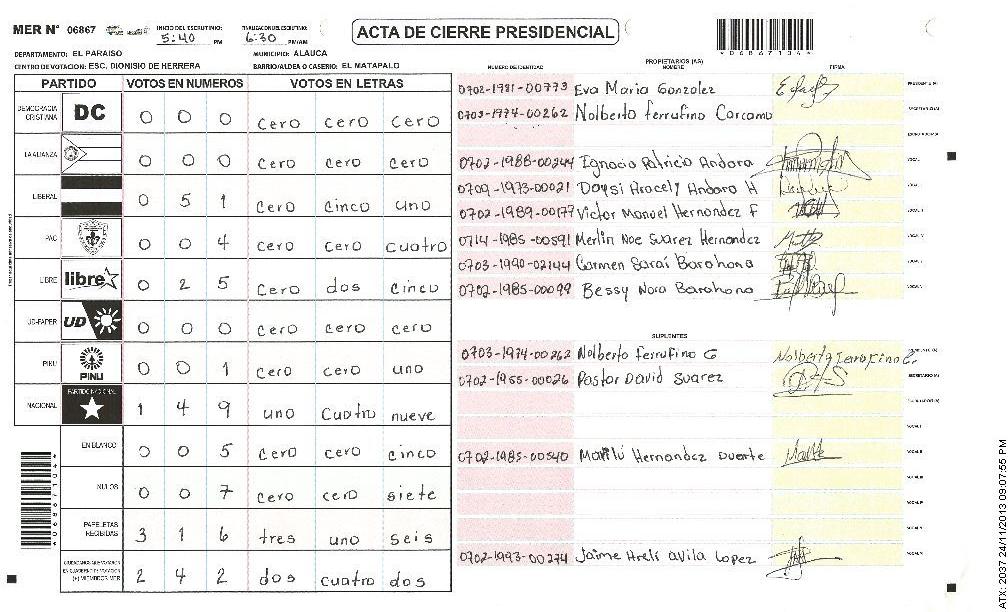 MER Nº 06867
INICIO DEL ESCRUTINIO: 5:40 PM
FINALIZACION DEL ESCRUTINIO: 6:30 PM/AM
ACTA DE CIERRE PRESIDENCIAL
*06867104*
DEPARTAMENTO: EL PARAISO
MUNICIPIO: ALAUCA
CENTRO DE VOTACION: ESC. DIONISIO DE HERRERA
BARRIO/ALDEA O CASERIO: EL MATAPALO
PARTIDO VOTOS EN NUMEROS VOTOS EN LETRAS
DEMOCRACIA CRISTIANA DC 0 0 0 cero cero cero
LA ALIANZA 0 0 0 cero cero cero
LIBERAL 0 5 1 cero cinco uno
PAC 0 0 4 cero cero cuatro
LIBRE libre 0 2 5 cero dos cinco
UD-FAPER UD 0 0 0 cero cero cero
PINU PINU 0 0 1 cero cero uno
NACIONAL PARTIDO NACIONAL 1 4 9 uno cuatro nueve
EN BLANCO 0 0 5 cero cero cinco
NULOS 0 0 7 cero cero siete
PAPELETAS RECIBIDAS 3 1 6 tres uno seis
2 4 2 dos cuatro dos
*06867104*
PROPIETARIOS (AS)
NUMERO DE IDENTIDAD NOMBRE FIRMA
0702-1981-00773 Eva Maria Gonzolez
0703-1974-00262 Nolberto Ferrufino Carcamo
0702-1988-00244 Ignacio Patricio Andara
0709-1973-00021 Daysi Aracely Andara H
0702-1989-00177 Victor Manuel Hernandez F
0714-1985-00591 Merlin Noe Suarez Hernandez
0703-1990-02144 Carmen Saraí Barahona
0702-1985-00099 Bessy Nora Barahona
SUPLENTES
0703-1974-00262 Nolberto Ferrufino C Nolberto Ferrufino C.
0702-1955-00026 Pastor David Suarez
0702-1985-00540 Marilú Hernandez Duarte
0702-1993-00274 Jaime Areli avila Lopez
ATX: 2037 24/11/2013 09:07:55 PM